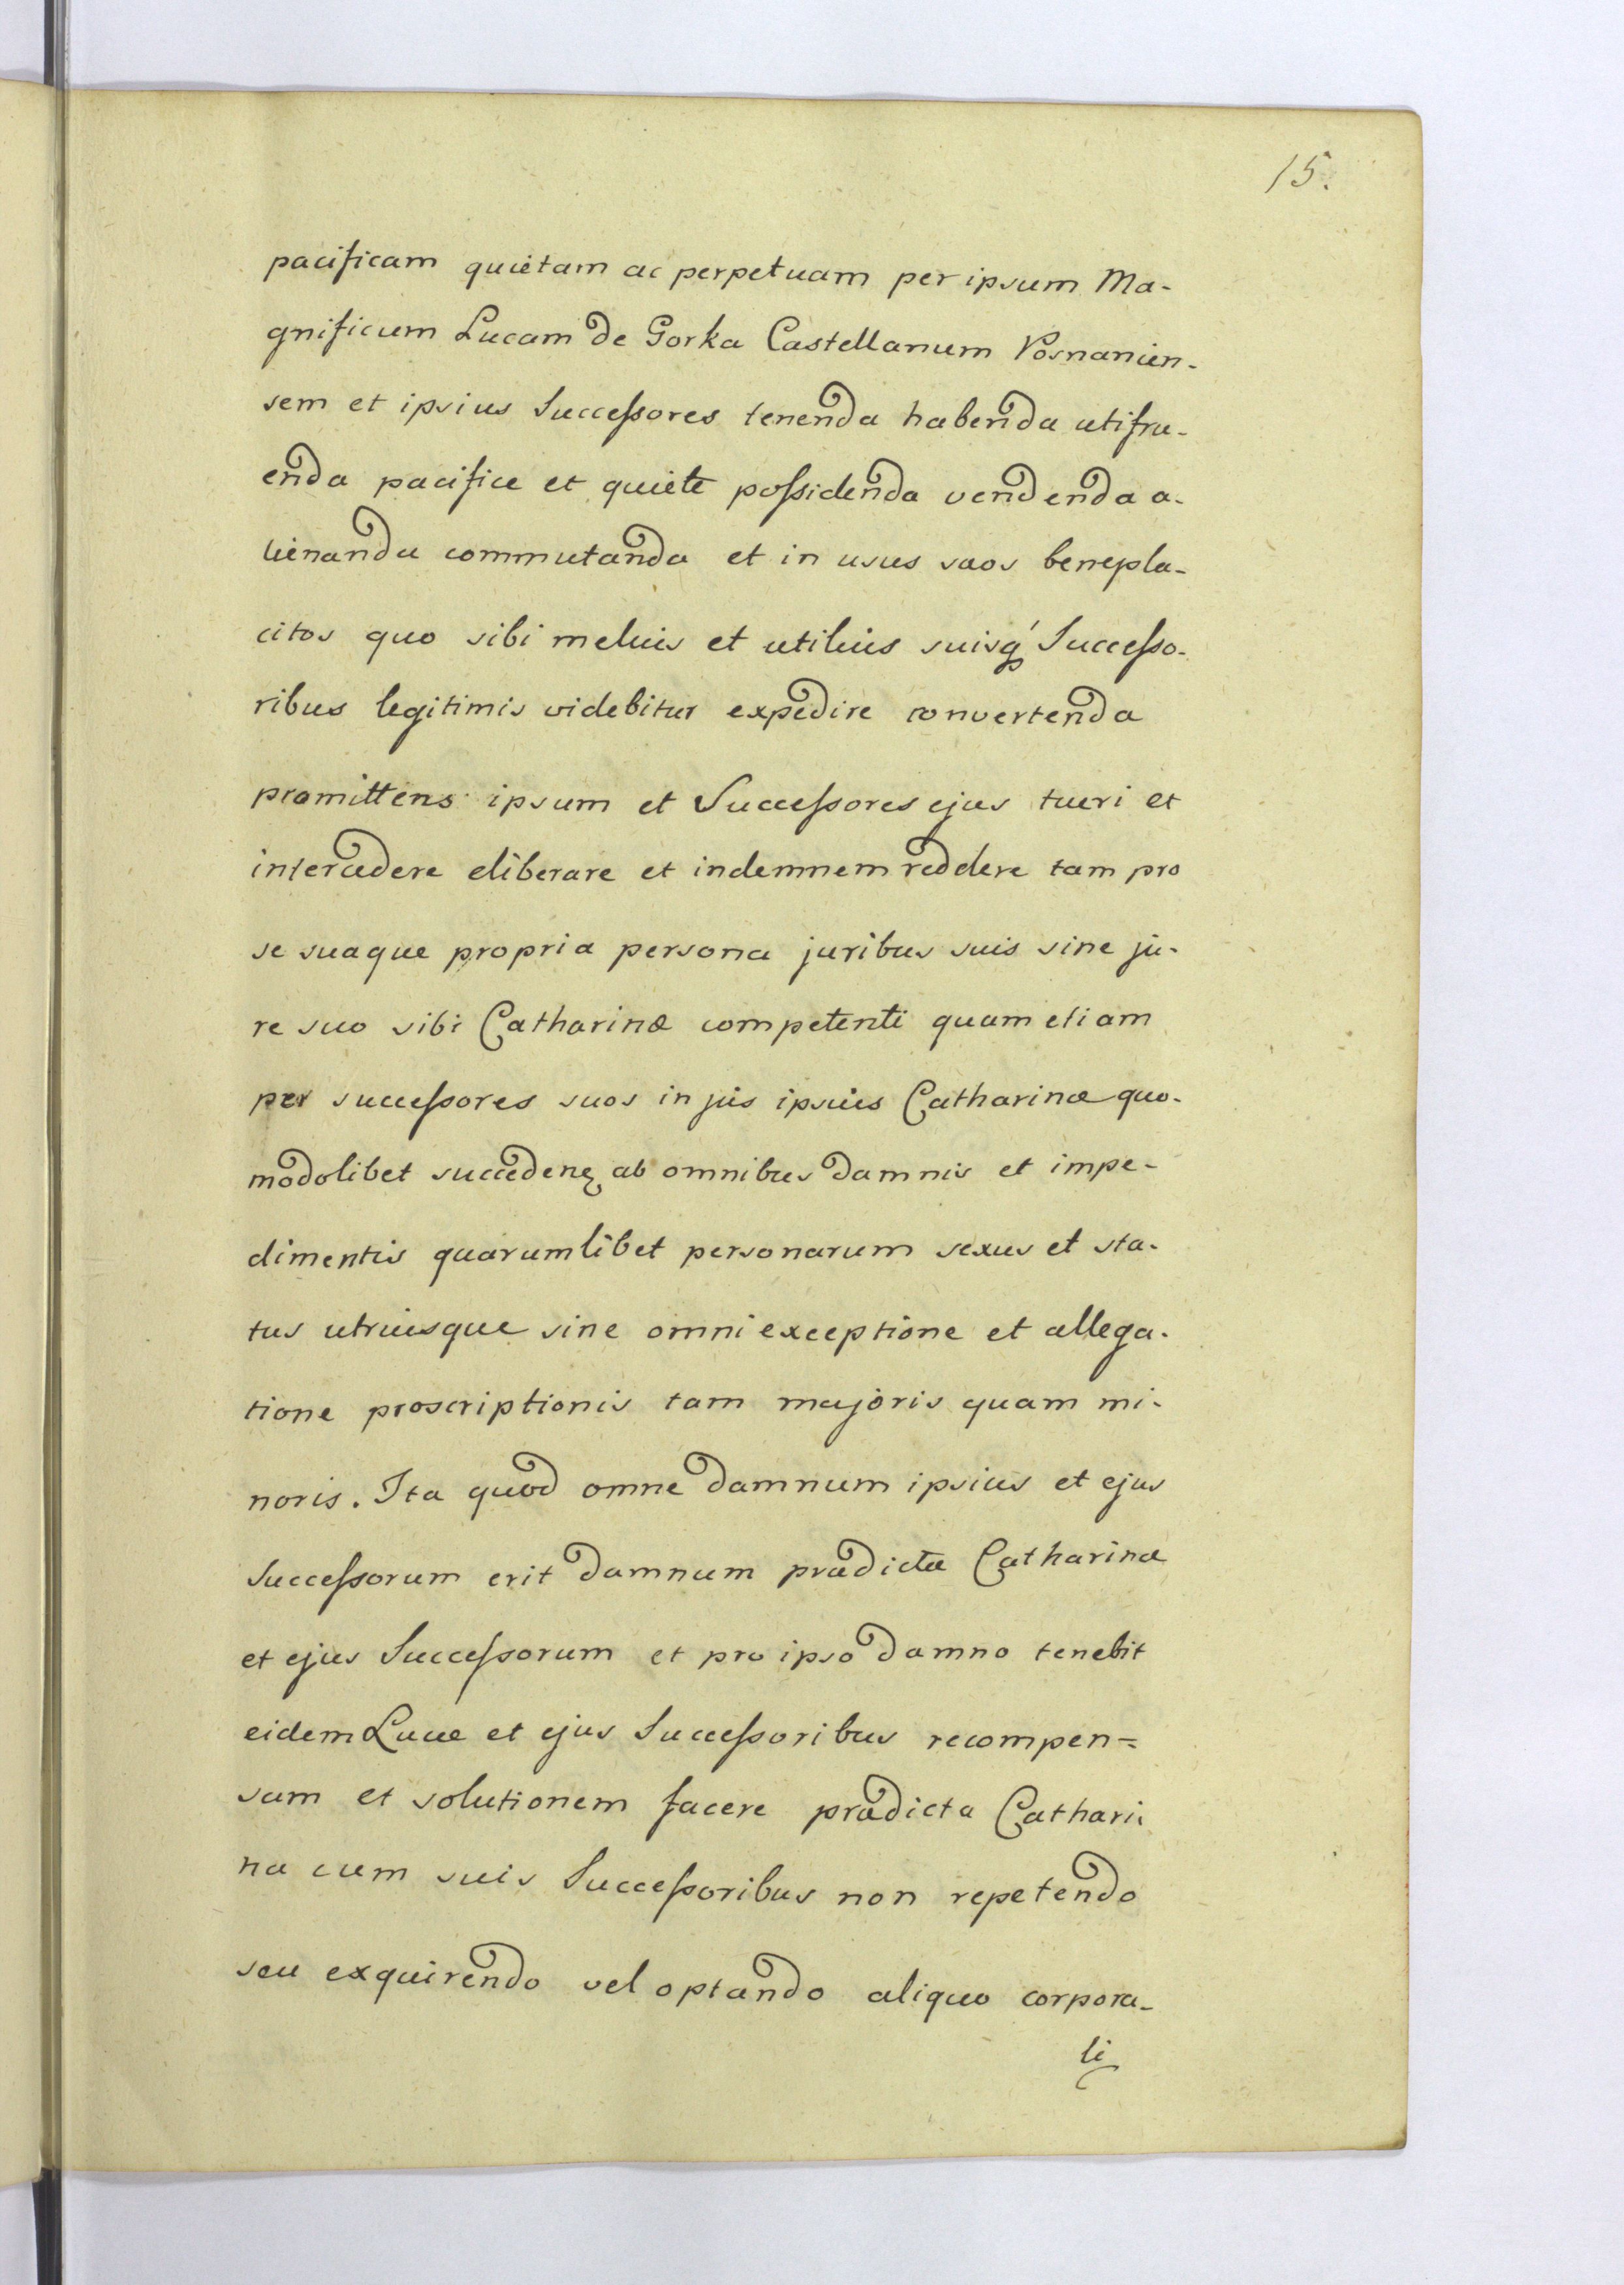 15.
pacificam quietam ac perpetuam per ipsum Ma-
gnificum Lucam de Gorka Castellanum Posnanien-
sem et ipsius Succeſsores tenenda habenda utifru-
enda pacifice et quiete poſsidenda vendenda a-
lienanda commutanda et in usus suos benepla-
citos quo sibi melius et utilius suisq́ Succeſso-
ribus legitimis videbitur expedire convertenda
promittens ipsum et Succeſsores ejus tueri et
intercedere eliberare et indemnem reddere tam pro
se suaque propria persona juribus suis sine ju-
re suo sibi Catharinæ competenti quam etiam
per succeſsores suos in jus ipsius Catharinæ quo-
modolibet succeden ab omnibus damnis et impe-
dimentis quarumlibet personarum sexus et sta-
tus utriusque sine omni exceptione et allega-
tione proscriptionis tam majoris quam mi-
noris. Ita quod omne damnum ipsius et ejus
Succeſsorum erit damnum prædictæ Catharinæ
et ejus Succeſsorum et pro ipso damno tenebit
eidem Lucæ et ejus Succeſsoribus recompen=
sam et solutionem facere prædicta Cathari-
na cum suis Succeſsoribus non repetendo
seu exquirendo vel optando aliquo corpora-
li